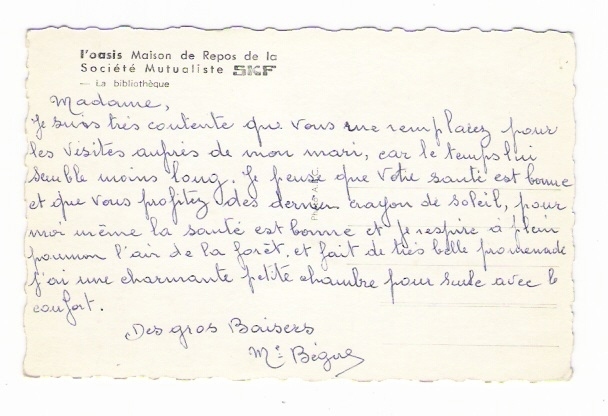 l'oasis Maison de Repos de la
Société Mutualiste SKF
— La bibliothèque
Madame,
Je suis très contente que vous me remplacez pour
les visites auprès de mon mari, car le temps lui
semble moins long. Je pense que votre santé est bonne
et que vous profitez des dernier crayon de soleil, pour
moi même la santé est bonne et je respire à plein
poumon l'air de la forêt. et fait de très belle promenade
j'ai une charmante petite chambre pour seule avec le
confort.
Des gros Baisers
Me Bègue
Photo A.